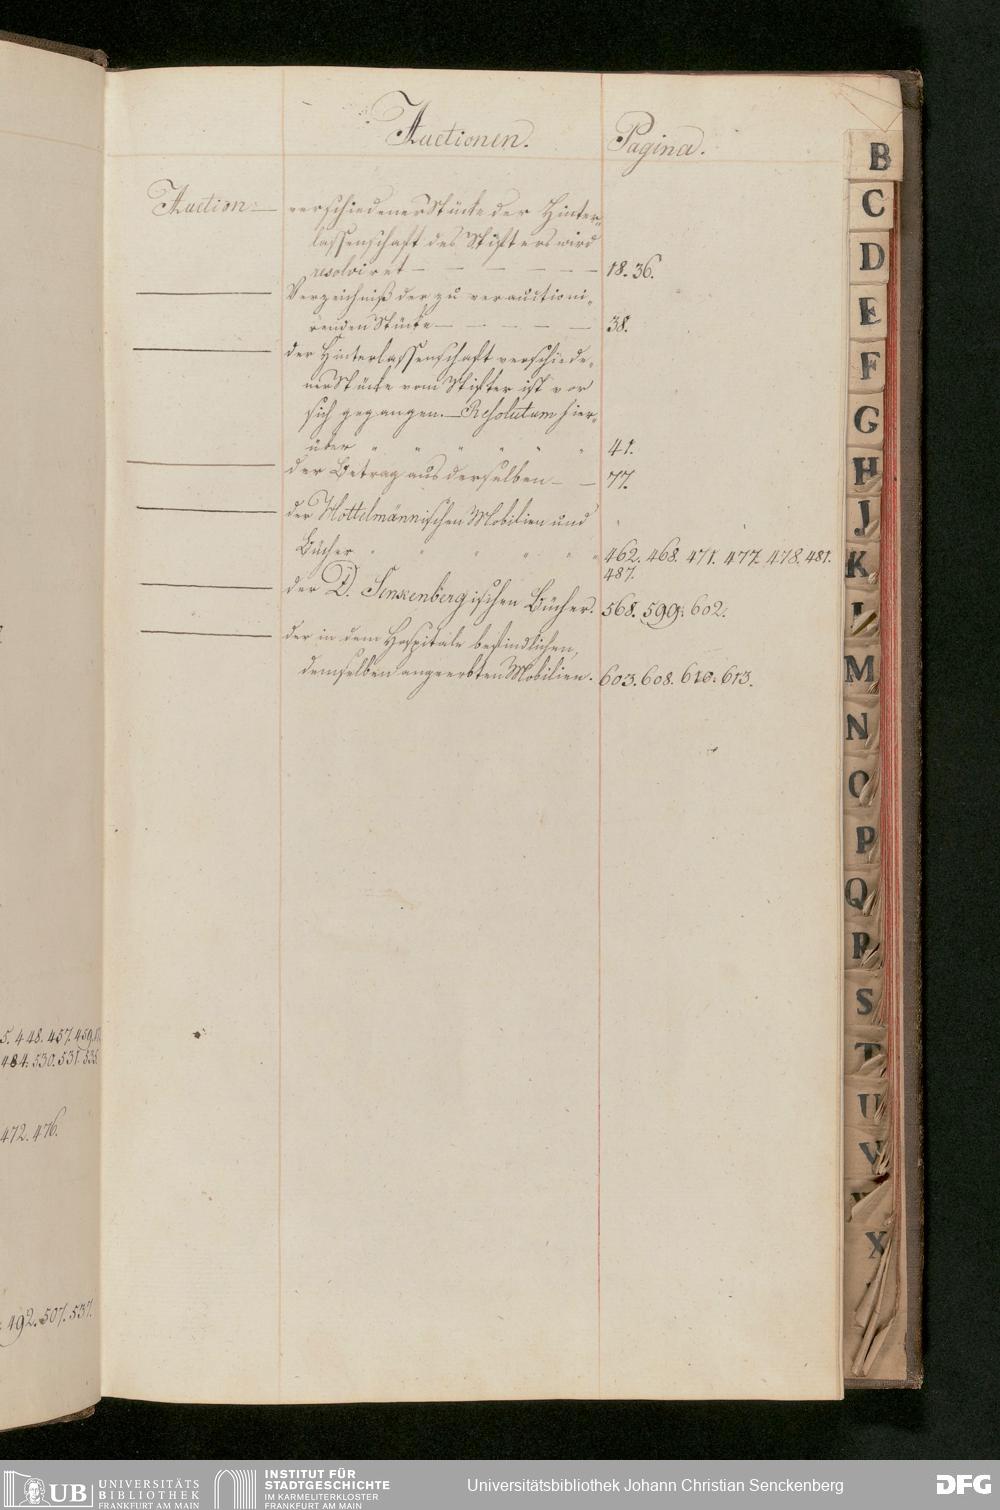 Auctionen. Pagina.
Auction — verschiedener Stücke der Hinter-
lassenschaft des Stifters wird
resolviret — — — — — — 18. 36.
——— Verzeichniß der zu verauctioni-
renden Stücke — — — — — 38.
——— der Hinterlassenschaft verschiede-
ner Stücke vom Stifter ist vor
sich gegangen. — Resolutum hier-
über " " " " " " 41.
——— der Betrag aus derselben — — 77.
——— der Hottelmännischen Mobilien und
Bücher " " " " " " 462. 468. 471. 477. 478. 481.
487.
——— der D. Senkenbergischen Bücher. 568. 599. 602.
——— der in dem Hospitale befindlichen,
demselben angeerbten Mobilien. 603. 608. 610. 613.
5. 448. 457. 459.
484. 530. 531. 535.
472. 476.
492. 507. 537.
B
C
D
E
F
G
H
J
K
L
M
N
O
P
Q
R
S
T
U
V
X
UB UNIVERSITÄTS
BIBLIOTHEK
FRANKFURT AM MAIN
INSTITUT FÜR
STADTGESCHICHTE
IM KARMELITERKLOSTER
FRANKFURT AM MAIN
Universitätsbibliothek Johann Christian Senckenberg
DFG